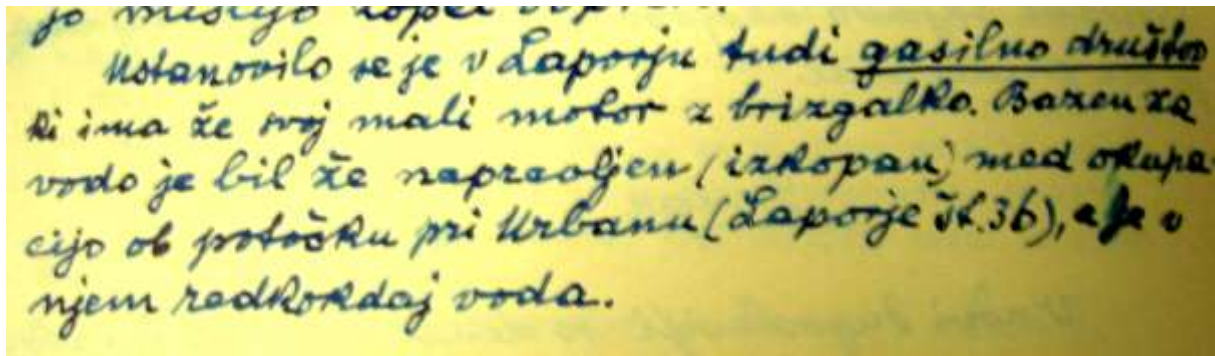 Ustanovilo se je v Laporju tudi gasilno društvo
ki ima že svoj mali motor z brizgalko. Bazen za
vodo je bil že napravljen (izkopan) med okupa-
cijo ob potočku pri Urbanu (Laporje št. 36), a je v
njem redkokdaj voda.